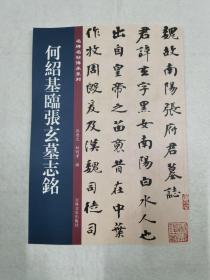 魏故南陽張府君墓誌
君諱玄字黑女南陽白水人也
出自皇帝之苗裔昔在中葉
作牧周殷爰及漢魏司徒司
名碑名帖傳本系列
何紹基臨張玄墓志銘
吉林文史出版社